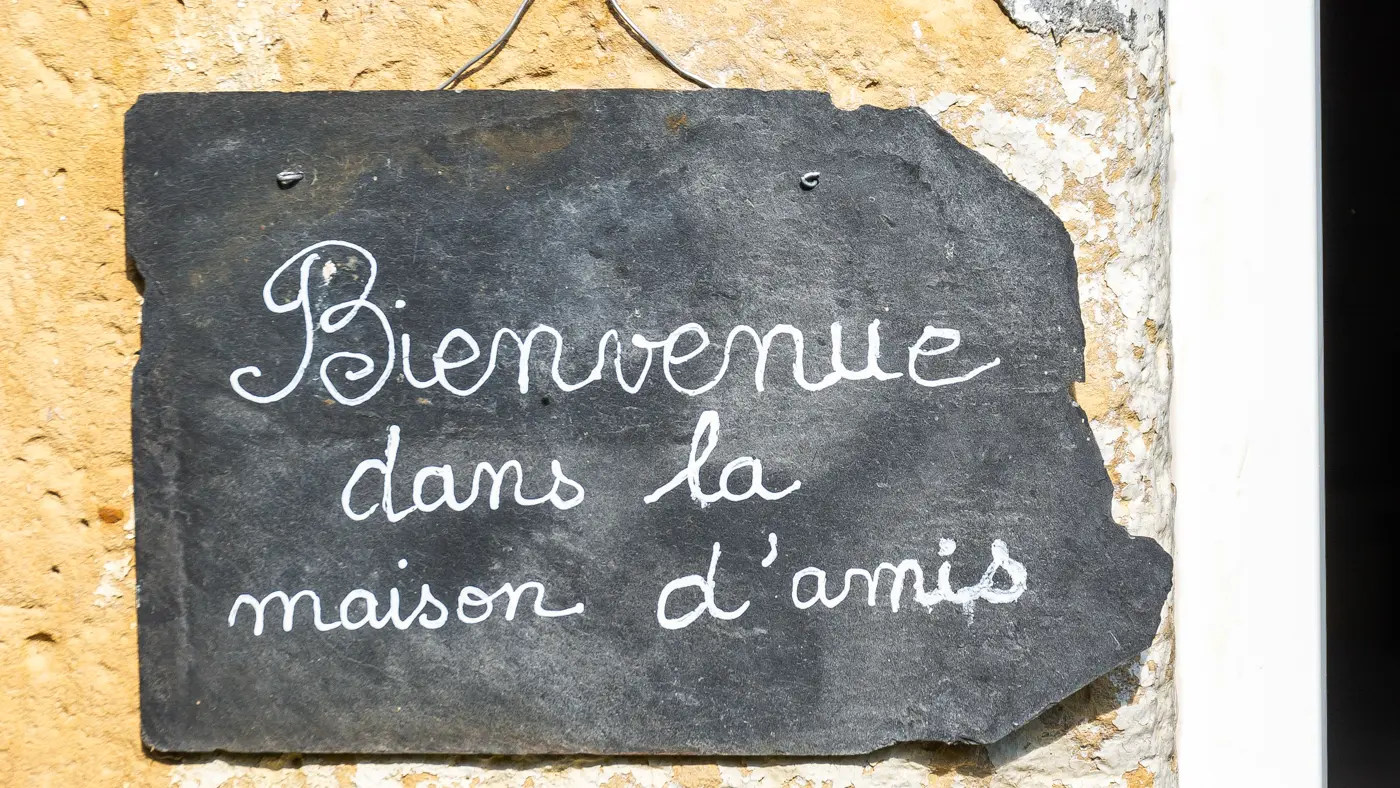 Bienvenue
dans la
maison d'amis